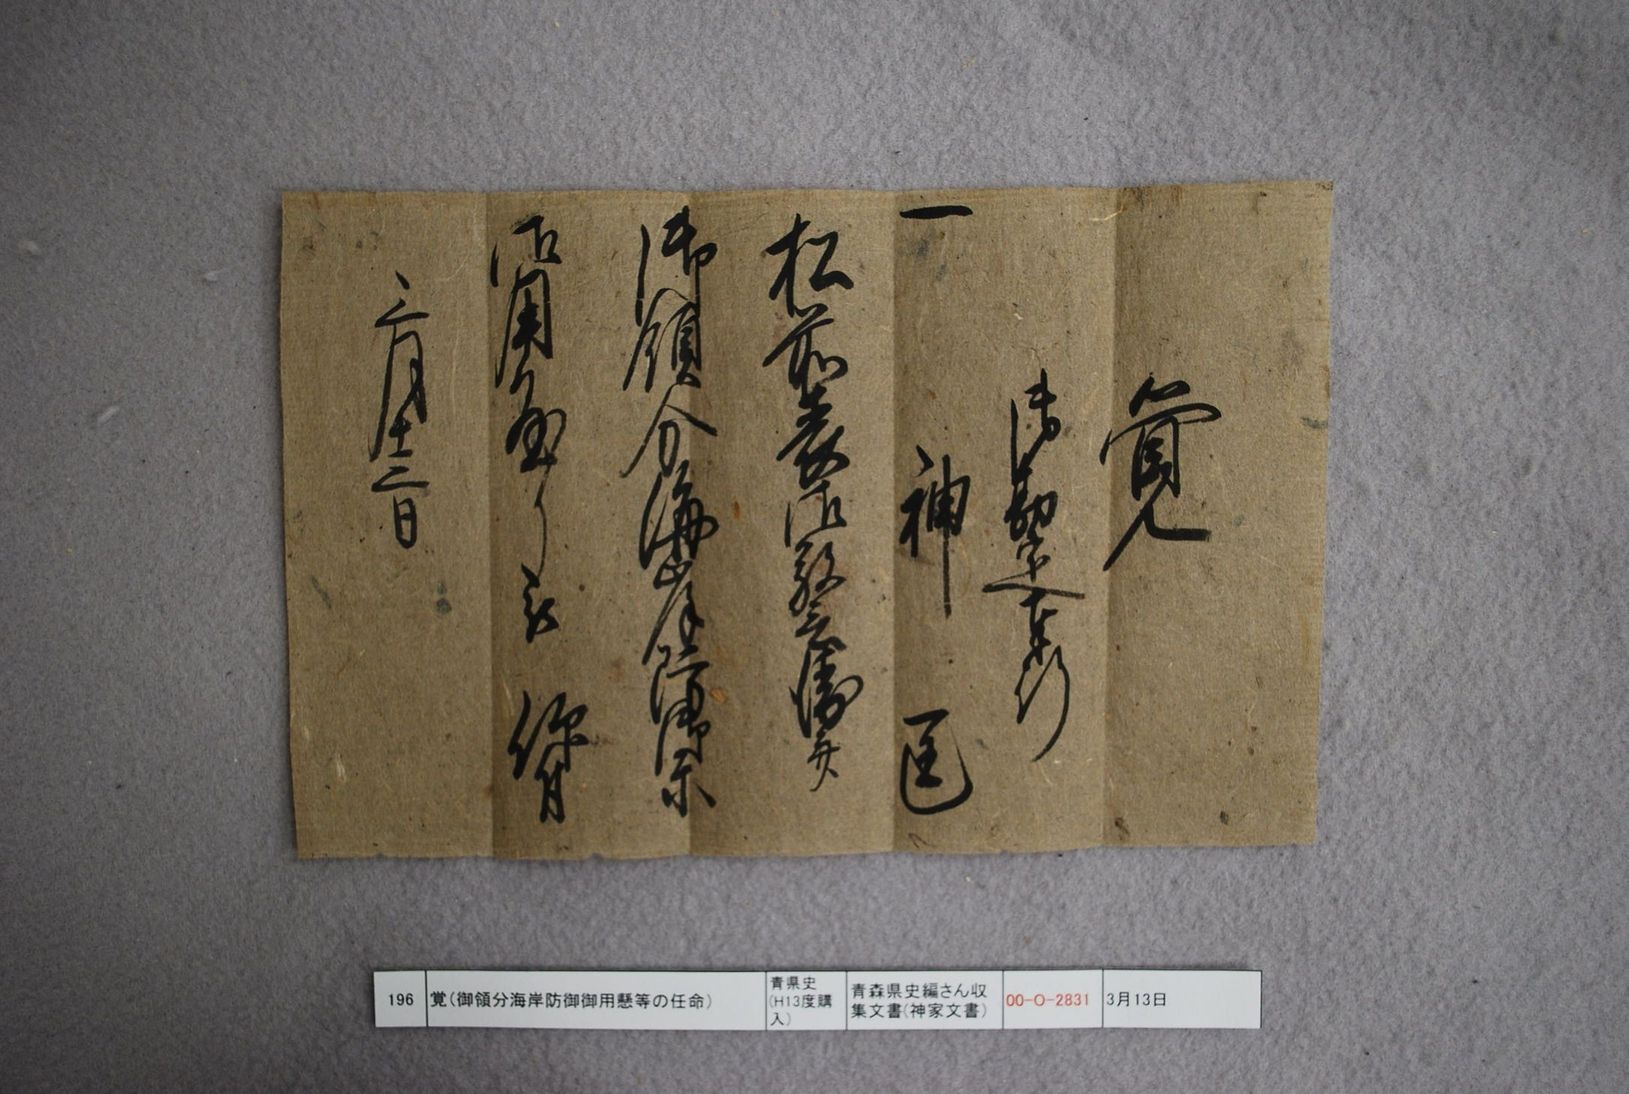 覚
御勘定奉行
一 神 匡
松前表御警衛并
御領分海岸防禦
御用懸り被 仰付
三月十三日
196 覚(御領分海岸防御御用懸等の任命) 青県史(H13度購入) 青森県史編さん収集文書(神家文書) 00-O-2831 3月13日